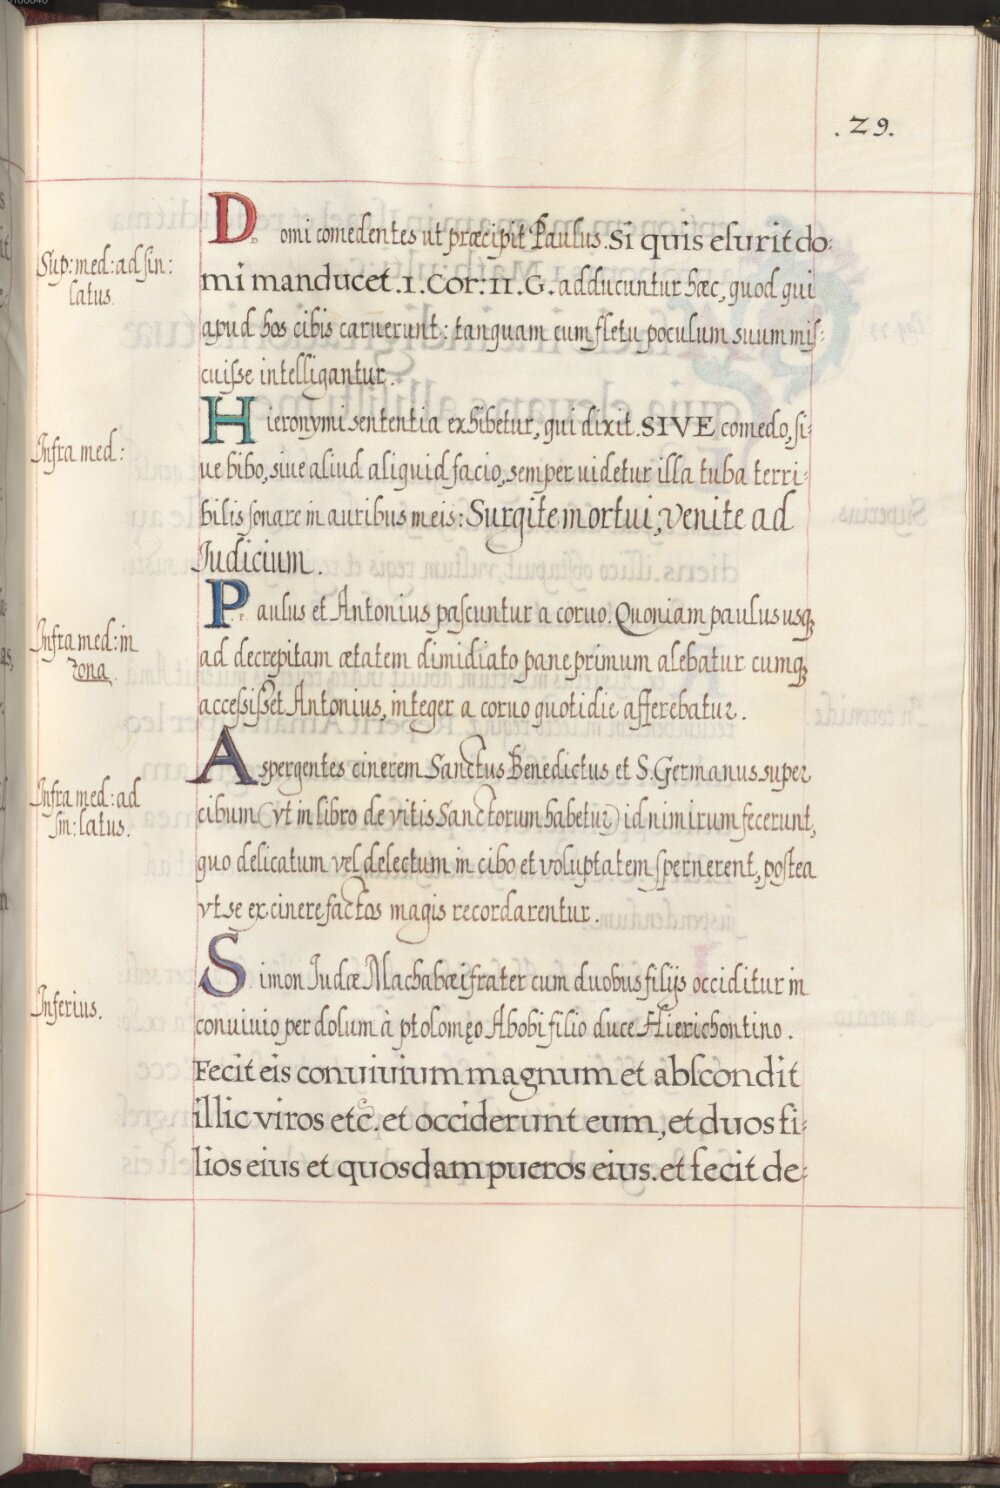 .29.
Sup: med: ad sin:
latus.
Domi comedentes ut præcipit Paulus. Si quis esurit do:
mi manducet .1. Cor: 11. G. adducuntur hæc, quod qui
apud hos cibis caruerunt: tanquam cum fletu poculum suum mis:
cuisse intelligantur.
Infra med:
Hieronymi sententia exhibetur, qui dixit. SIVE comedo, si:
ue bibo, siue aliud aliquid facio, semper uidetur illa tuba terri:
bilis sonare in auribus meis: Surgite mortui, venite ad
Iudicium.
Infra med: in
zona.
Paulus et Antonius pascuntur a coruo. Quoniam paulus usq;
ad decrepitam ætatem dimidiato pane primum alebatur cumq;
accessisset Antonius, integer a coruo quotidie afferebatur.
Infra med: ad
sin: latus.
Aspergentes cinerem Sanctus Benedictus et S. Germanus super
cibum (vt in libro de vitis Sanctorum habetur) id nimirum fecerunt,
quo delicatum vel delectum in cibo et voluptatem spernerent, postea
vt se ex cinere factos magis recordarentur.
Inferius.
Simon Iudæ Machabæi frater cum duobus filijs occiditur in
conuiuio per dolum à ptolomęo Abobi filio duce Hierichontino.
Fecit eis conuiuium magnum et abscondit
illic viros etc. et occiderunt eum, et duos fi:
lios eius et quosdam pueros eius. et fecit de: